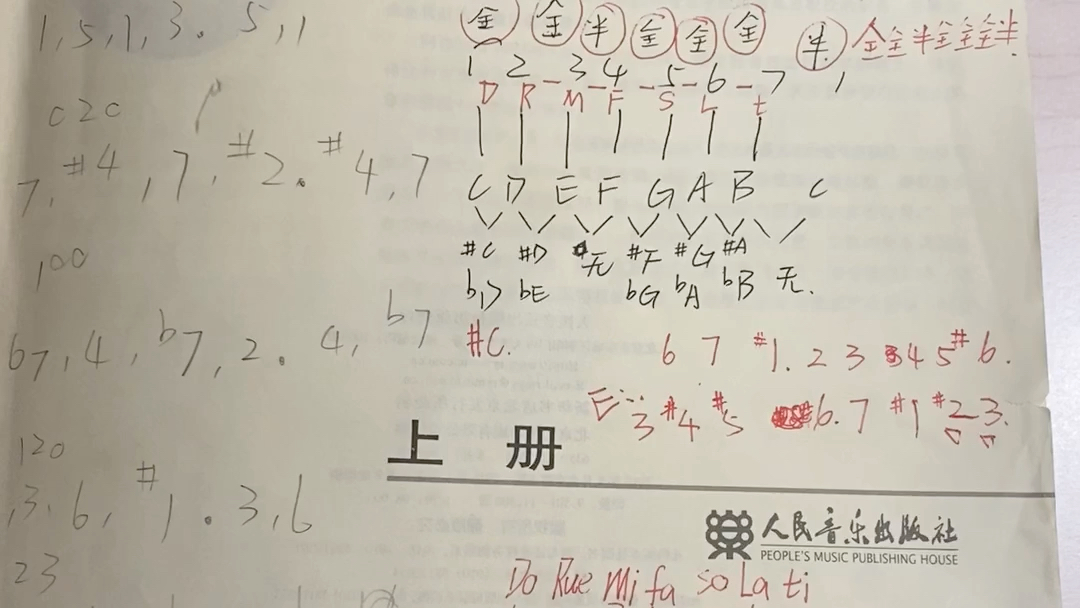 1,5,1,3. 5,1
020
7,#4,7,#2. #4,7
100
b7,4,b7,2. 4,b7
120
,3.6,#1.3,6
23
全 全 半 全 全 全 半 全全半全全全半
1 2 - 3 - 4 - 5 - 6 - 7 1
D R M F S L t
C D E F G A B C
#C #D 无 #F #G #A
bD bE bG bA bB 无.
#C. 6 7 #1. 2 3 4 5 #6.
E: 3 #4 #5 6. 7 #1 #2 3.
上 册
人民音乐出版社
PEOPLE'S MUSIC PUBLISHING HOUSE
Do Rue Mi fa so La ti